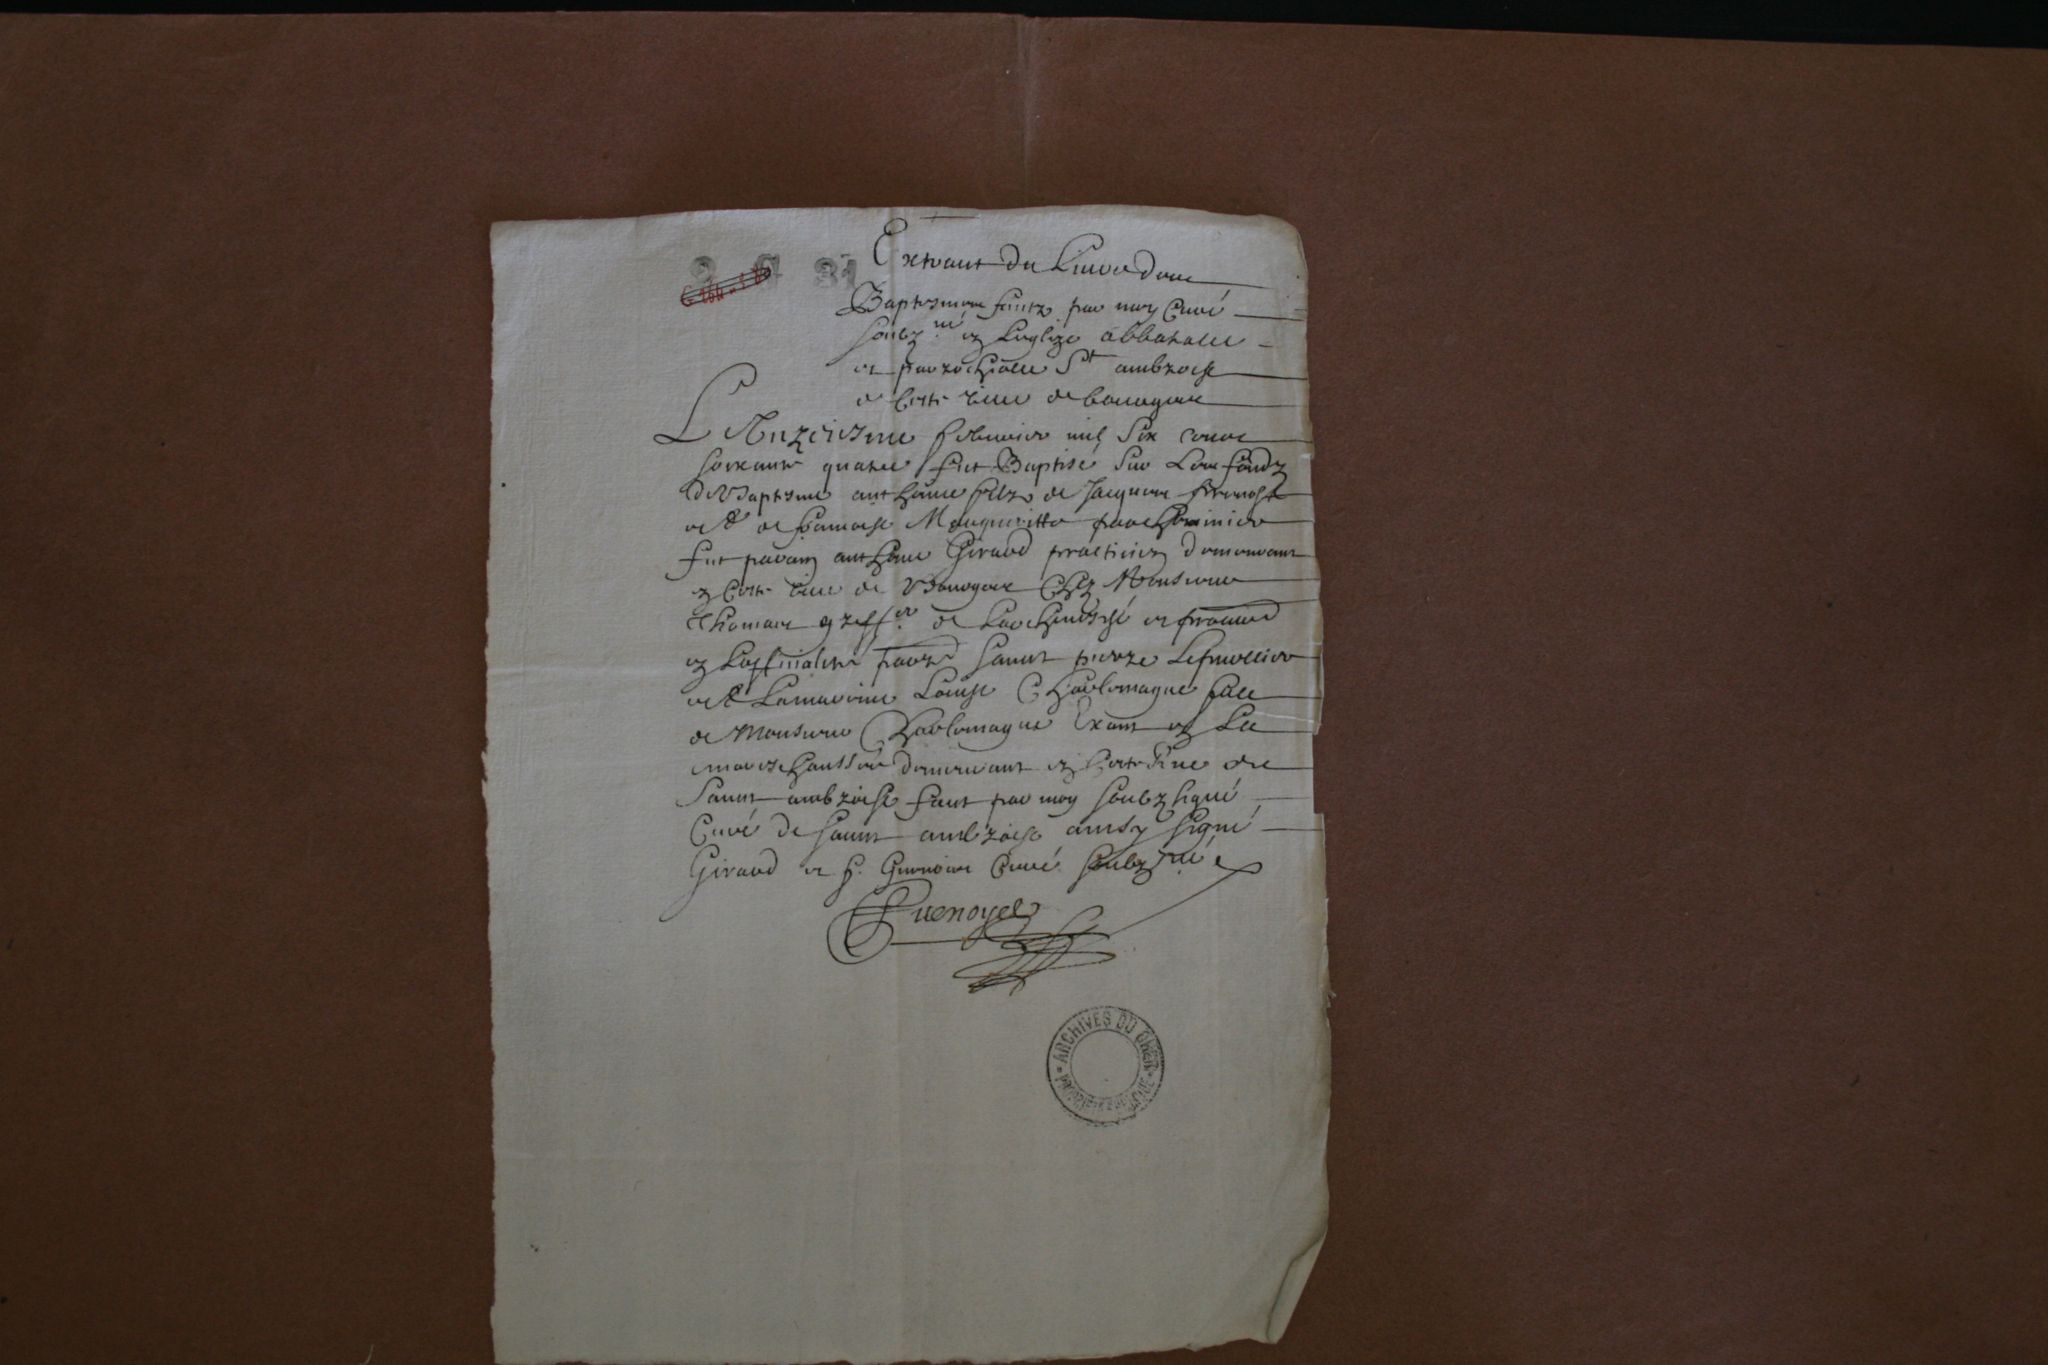 2 G 31
Extraict du Livre des
Baptesmes faictz par moy Curé
soubz.né en Leglize abbatialle
et parrochialle St ambroise
de ceste ville de bourges
L'Onziesme febvrier mil six centz
soixante quatre fut Baptisé sur Les fondz
de Baptesme anthoine filz de Jacques
et de françoise Margueritte
fut parain anthoine Giraud practicien demeurant
en ceste ville de Bourges Chez Monsieur
Thomas greff.er de L'archevesché et
en parr saint pierre
et La maraine Louise Charlemagne fille
de Monsieur Charlemagne Exant en La
mareschaussée demeurant en ceste ville de
Saint ambroise faict par moy soubzsigné
Curé de saint ambroise ainsy signé
Giraud et f. Guenois Curé soubz.né
Guenoys
ARCHIVES DU CHER
PROPRIÉTÉ PUBLIQUE